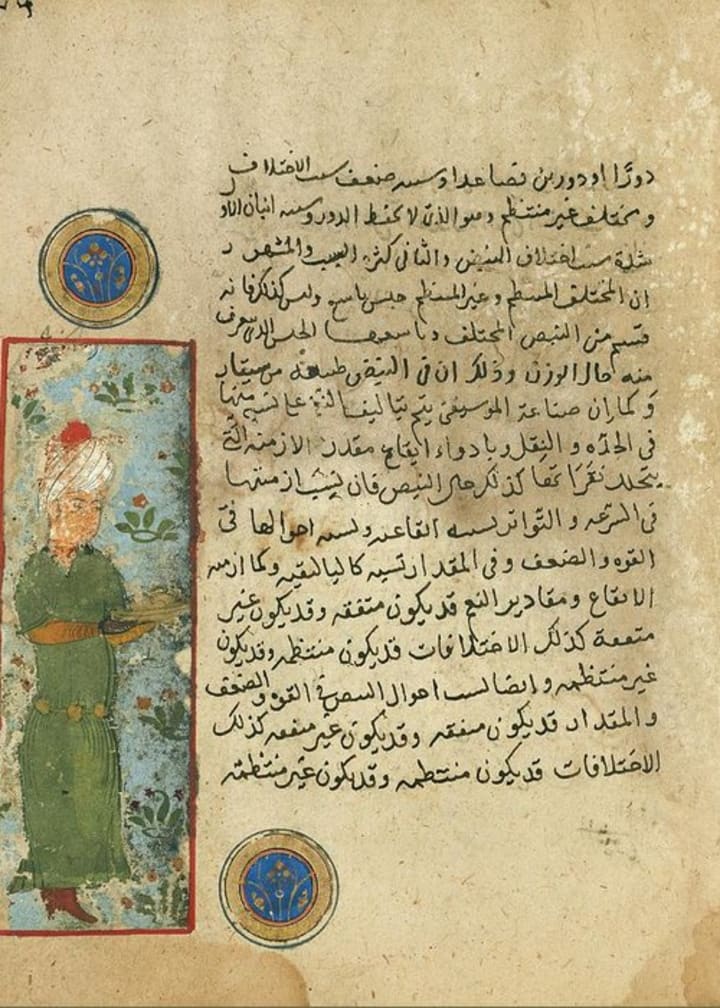 دورًا او دورين فصاعدا وسبب ضعف سبب الاختلاف
ومختلف غير منتظم وهو الذي لا يحفظ الدور وسببه اتيان الاو
شدة سبب اختلاف النبض والثاني كثرة السبب والمشهور
ان المختلف المنتظم وغير المنتظم جنس تاسع وليس كذلك فانه
قسم من النبض المختلف وتاسعها الجنس الذي يعرف
منه حال الوزن وذلك ان في النبض طبيعة موسيقار
وكما ان صناعة الموسيقى يتم بتاليف النغم على نسبة بينها
في الحدّه و الثقل وبادوار ايقاع مقدار الازمنه التي
يتخلل نقراتها كذلك حال النبض فان نسبت ازمنتها
في السرعه و التواتر نسبه ايقاعيه ونسبه احوالها فى
القوه والضعف وفي المقدار نسبه كالتاليفيه وكما ازمنه
الايقاع ومقادير النغم قد يكون متفقه وقد يكون غير
متفقة كذلك الاختلافات قد يكون منتظمه وقد يكون
غير منتظمه وايضا نسب احوال النبض في القوه والضعف
والمقدار قد يكون متفقه وقد يكون غير متفقه كذلك
الاختلافات قد يكون منتظمه وقد يكون غير منتظمة